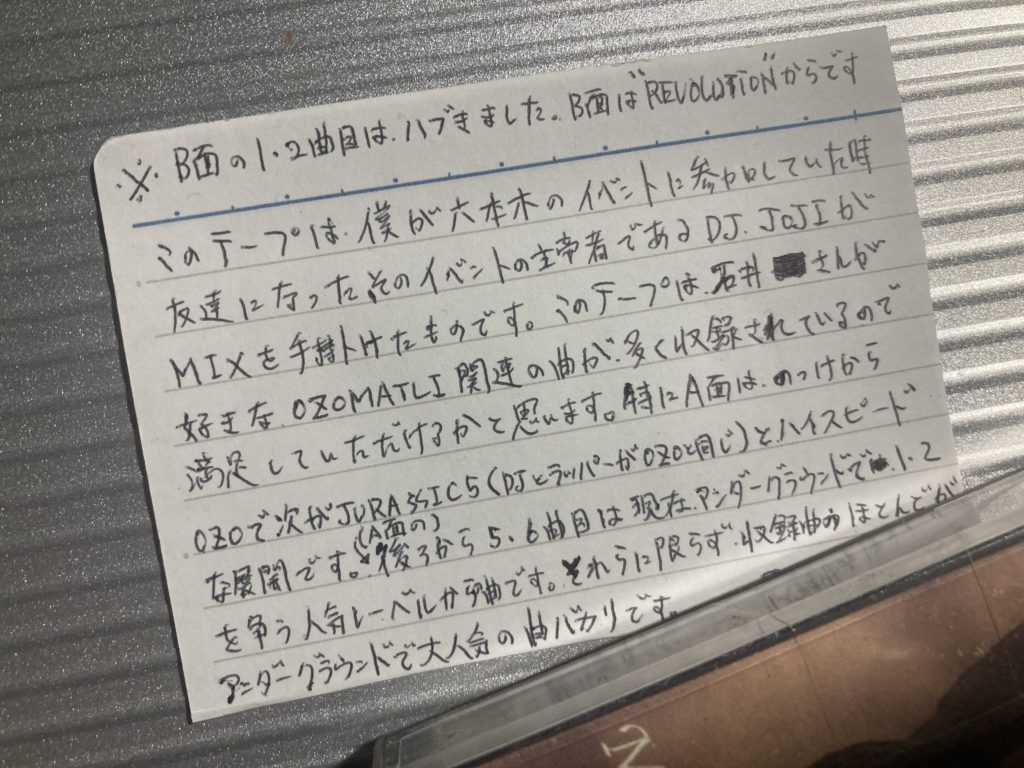 ※ B面の1.2曲目は、ハブきました。B面は"REVOLUTION"からです
このテープは、僕が六本木のイベントに参加していた時
友達になったそのイベントの主帝者であるDJ.JOJIが
MIXを手掛けたものです。このテープは、石井 さんが
好きな、OZOMATLI関連の曲が、多く収録されているので
満足していただけるかと思います。特にA面は、のっけから
OZOで次がJURASSIC5(DJとラッパーがOZOと同じ)とハイスピード
な展開です。(A面の)後ろから5、6曲目は現在、アンダーグラウンドで1.2
を争う人気レーベルから曲です。それらに限らず、収録曲のほとんどが
アンダーグラウンドで大人気の曲バカリです。